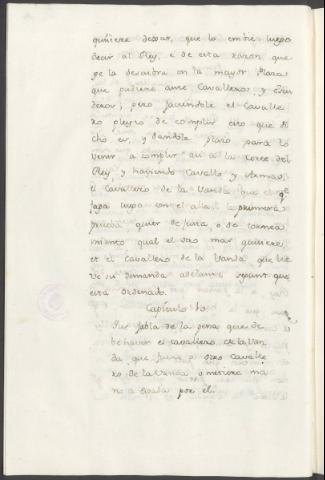 quisiere dexar, que la embie luego
decir al Rey, é de esta razon que
se la descubra en la mayor Plaza
que pudiere ante Cavalleros, y Escu
deros; pero faciendole el Cavalle
ro pleyto de complir esto que di
cho es, y dandole plazo para lo
venir a complir asi a la Corte del
Rey, y haviendo Cavallo y Armas,
el Cavallero de la Vanda que el qe
faga luego con el alli la primera
prueba, quier de justa, o de tornea
miento qual el otro mas quisiere
et el Cavallero de la Vanda que lie
ve su demanda adelante segunt que
esta ordenado.
Capitulo 10.
Que fabla de la pena que de
be haver el cavallero de la Van
da que firiere a otro cavalle
ro de la Vanda o metiere ma
no a espada por él.